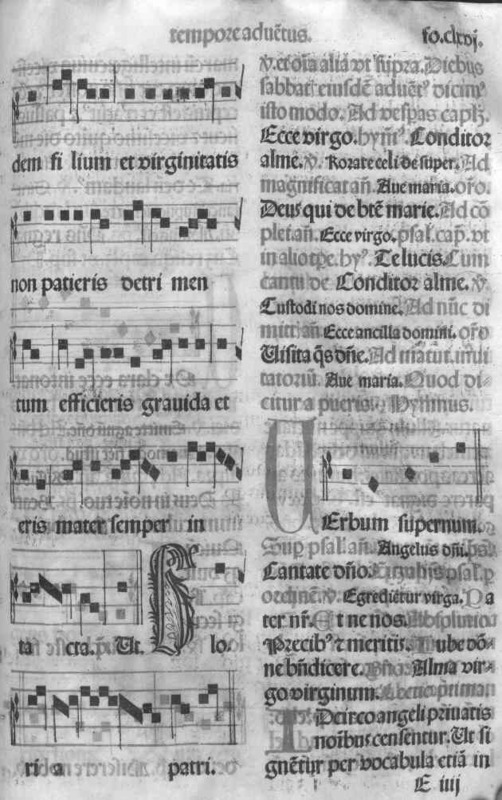 tempore aduẽtus.
fo.clxvj.
dem fi lium et virginitatis
non patieris detri men
tum efficieris grauida et
eris mater semper in
ta cta. p̃. Ut. S lo.
ri a patri.
sabbati eiusdẽ aduẽtꝰ dicimꝰ
isto modo. Ad vesp̃as capl̃ꝫ.
Ecce virgo. hymꝰ. Conditor
alme. ℣. Rorate celi desuper. Ad
magnificat añ. Aue maria. oro.
Deus qui de btẽ marie. Ad cõ
plet añ. Ecce virgo. psal. cap̃. vt
in alio tp̃e. hyꝰ. Te lucis. Cum
cantu de Conditor alme. ℣.
Custodi nos domine. Ad nũc di
mitt añ. Ecce ancilla domini. oro
Uisita q̃s dñe. Ad matut. inui
tatoriũ. Aue maria. Quod di-
citur a pueris. Hymnus.
UErbum supernum.
Sup̃ psal. añ. Angelus dñi. ps.
Cantate dño. psal. p
ordinẽ. ℣. Egredietur virga. Pa
ter nr̃. Et ne nos. Absolutio
Precibꝰ ⁊ meritis. Iube dõ-
ne bñdicere. Alma vir-
go virginum. Lectio priman
IDcirco angeli priuatis
noĩbus censentur. Ut si
gnẽtur per vocabula etiã in
E iiij